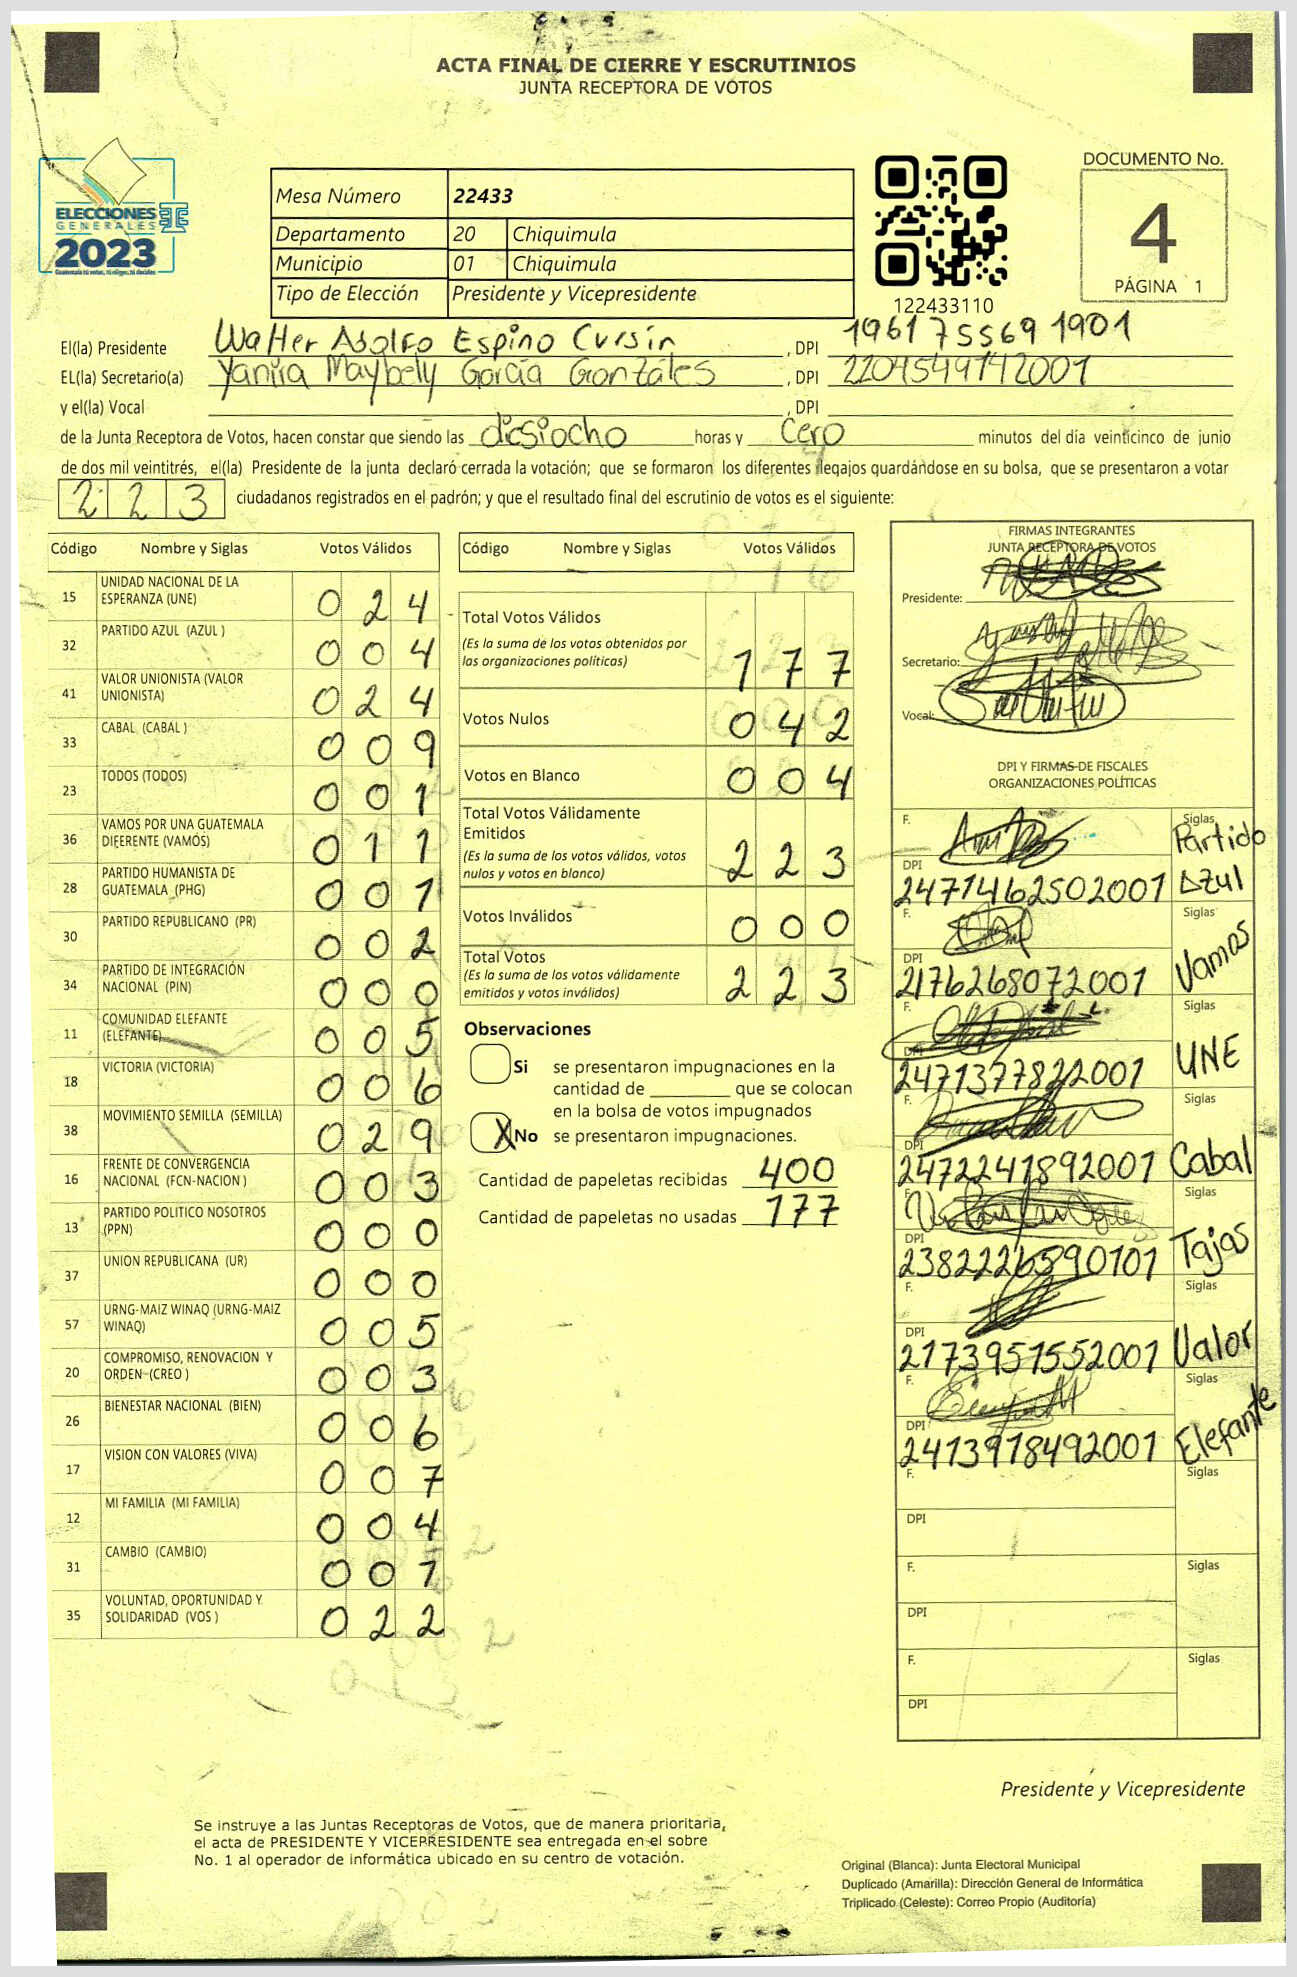 ACTA FINAL DE CIERRE Y ESCRUTINIOS
JUNTA RECEPTORA DE VOTOS
ELECCIONES
GENERALES
2023
Mesa Número 22433
Departamento 20 Chiquimula
Municipio 01 Chiquimula
Tipo de Elección Presidente y Vicepresidente
122433110
DOCUMENTO No.
4
PÁGINA 1
El(la) Presidente Walter Adolfo Espino Cursin , DPI 1961755691901
EL(la) Secretario(a) Yanira Maybely García Gonzáles , DPI 2204549142001
y el(la) Vocal , DPI
de la Junta Receptora de Votos, hacen constar que siendo las diesiocho horas y cero minutos del día veinticinco de junio
de dos mil veintitrés, el(la) Presidente de la junta declaró cerrada la votación; que se formaron los diferentes legajos quardándose en su bolsa, que se presentaron a votar
223 ciudadanos registrados en el padrón; y que el resultado final del escrutinio de votos es el siguiente:
Código Nombre y Siglas Votos Válidos
15 UNIDAD NACIONAL DE LA ESPERANZA (UNE) 024
32 PARTIDO AZUL (AZUL ) 004
41 VALOR UNIONISTA (VALOR UNIONISTA) 024
33 CABAL (CABAL ) 009
23 TODOS (TODOS) 001
36 VAMOS POR UNA GUATEMALA DIFERENTE (VAMOS) 011
28 PARTIDO HUMANISTA DE GUATEMALA (PHG) 001
30 PARTIDO REPUBLICANO (PR) 002
34 PARTIDO DE INTEGRACIÓN NACIONAL (PIN) 000
11 COMUNIDAD ELEFANTE (ELEFANTE) 005
18 VICTORIA (VICTORIA) 006
38 MOVIMIENTO SEMILLA (SEMILLA) 029
16 FRENTE DE CONVERGENCIA NACIONAL (FCN-NACION ) 003
13 PARTIDO POLITICO NOSOTROS (PPN) 000
37 UNION REPUBLICANA (UR) 000
57 URNG-MAIZ WINAQ (URNG-MAIZ WINAQ) 005
20 COMPROMISO, RENOVACION Y ORDEN (CREO ) 003
26 BIENESTAR NACIONAL (BIEN) 006
17 VISION CON VALORES (VIVA) 007
12 MI FAMILIA (MI FAMILIA) 004
31 CAMBIO (CAMBIO) 007
35 VOLUNTAD, OPORTUNIDAD Y SOLIDARIDAD (VOS ) 022
Código Nombre y Siglas Votos Válidos
Total Votos Válidos 177
(Es la suma de los votos obtenidos por
las organizaciones políticas)
Votos Nulos 042
Votos en Blanco 004
Total Votos Válidamente
Emitidos 223
(Es la suma de los votos válidos, votos
nulos y votos en blanco)
Votos Inválidos 000
Total Votos 223
(Es la suma de los votos válidamente
emitidos y votos inválidos)
Observaciones
Si se presentaron impugnaciones en la
cantidad de que se colocan
en la bolsa de votos impugnados
X No se presentaron impugnaciones.
Cantidad de papeletas recibidas 400
Cantidad de papeletas no usadas 177
FIRMAS INTEGRANTES
JUNTA RECEPTORA DE VOTOS
Presidente:
Secretario:
Vocal:
DPI Y FIRMAS DE FISCALES
ORGANIZACIONES POLÍTICAS
F. Siglas Partido Azul
DPI 2471462502001
F. Siglas Vamos
DPI 2176268072001
F. Siglas UNE
DPI 2471377822001
F. Siglas Cabal
DPI 2472241892001
F. Siglas Tajos
DPI 2382226590101
F. Siglas Valor
DPI 2173951552001
F. Siglas Elefante
DPI 2413918492001
F. Siglas
DPI
F. Siglas
DPI
F. Siglas
DPI
Presidente y Vicepresidente
Se instruye a las Juntas Receptoras de Votos, que de manera prioritaria,
el acta de PRESIDENTE Y VICEPRESIDENTE sea entregada en el sobre
No. 1 al operador de informática ubicado en su centro de votación.
Original (Blanca): Junta Electoral Municipal
Duplicado (Amarilla): Dirección General de Informática
Triplicado (Celeste): Correo Propio (Auditoría)